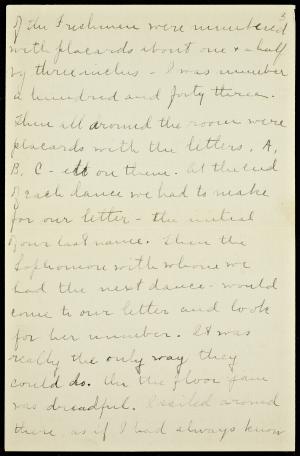 3
of the Freshmen were numbered
with placards about one + a half
by three inches - I was number
a hundred and forty three.
Then all around the room were
placards with the letters, A,
B, C - ett on them. At the end
of each dance we had to make
for our letter - the initial
of our last name. Then the
Sophomore with whom we
had the next dance - would
come to our letter and look
for her number. It was
really the only way they
could do. On the floor jam
was dreadful. I sailed around
there, as if I had always know